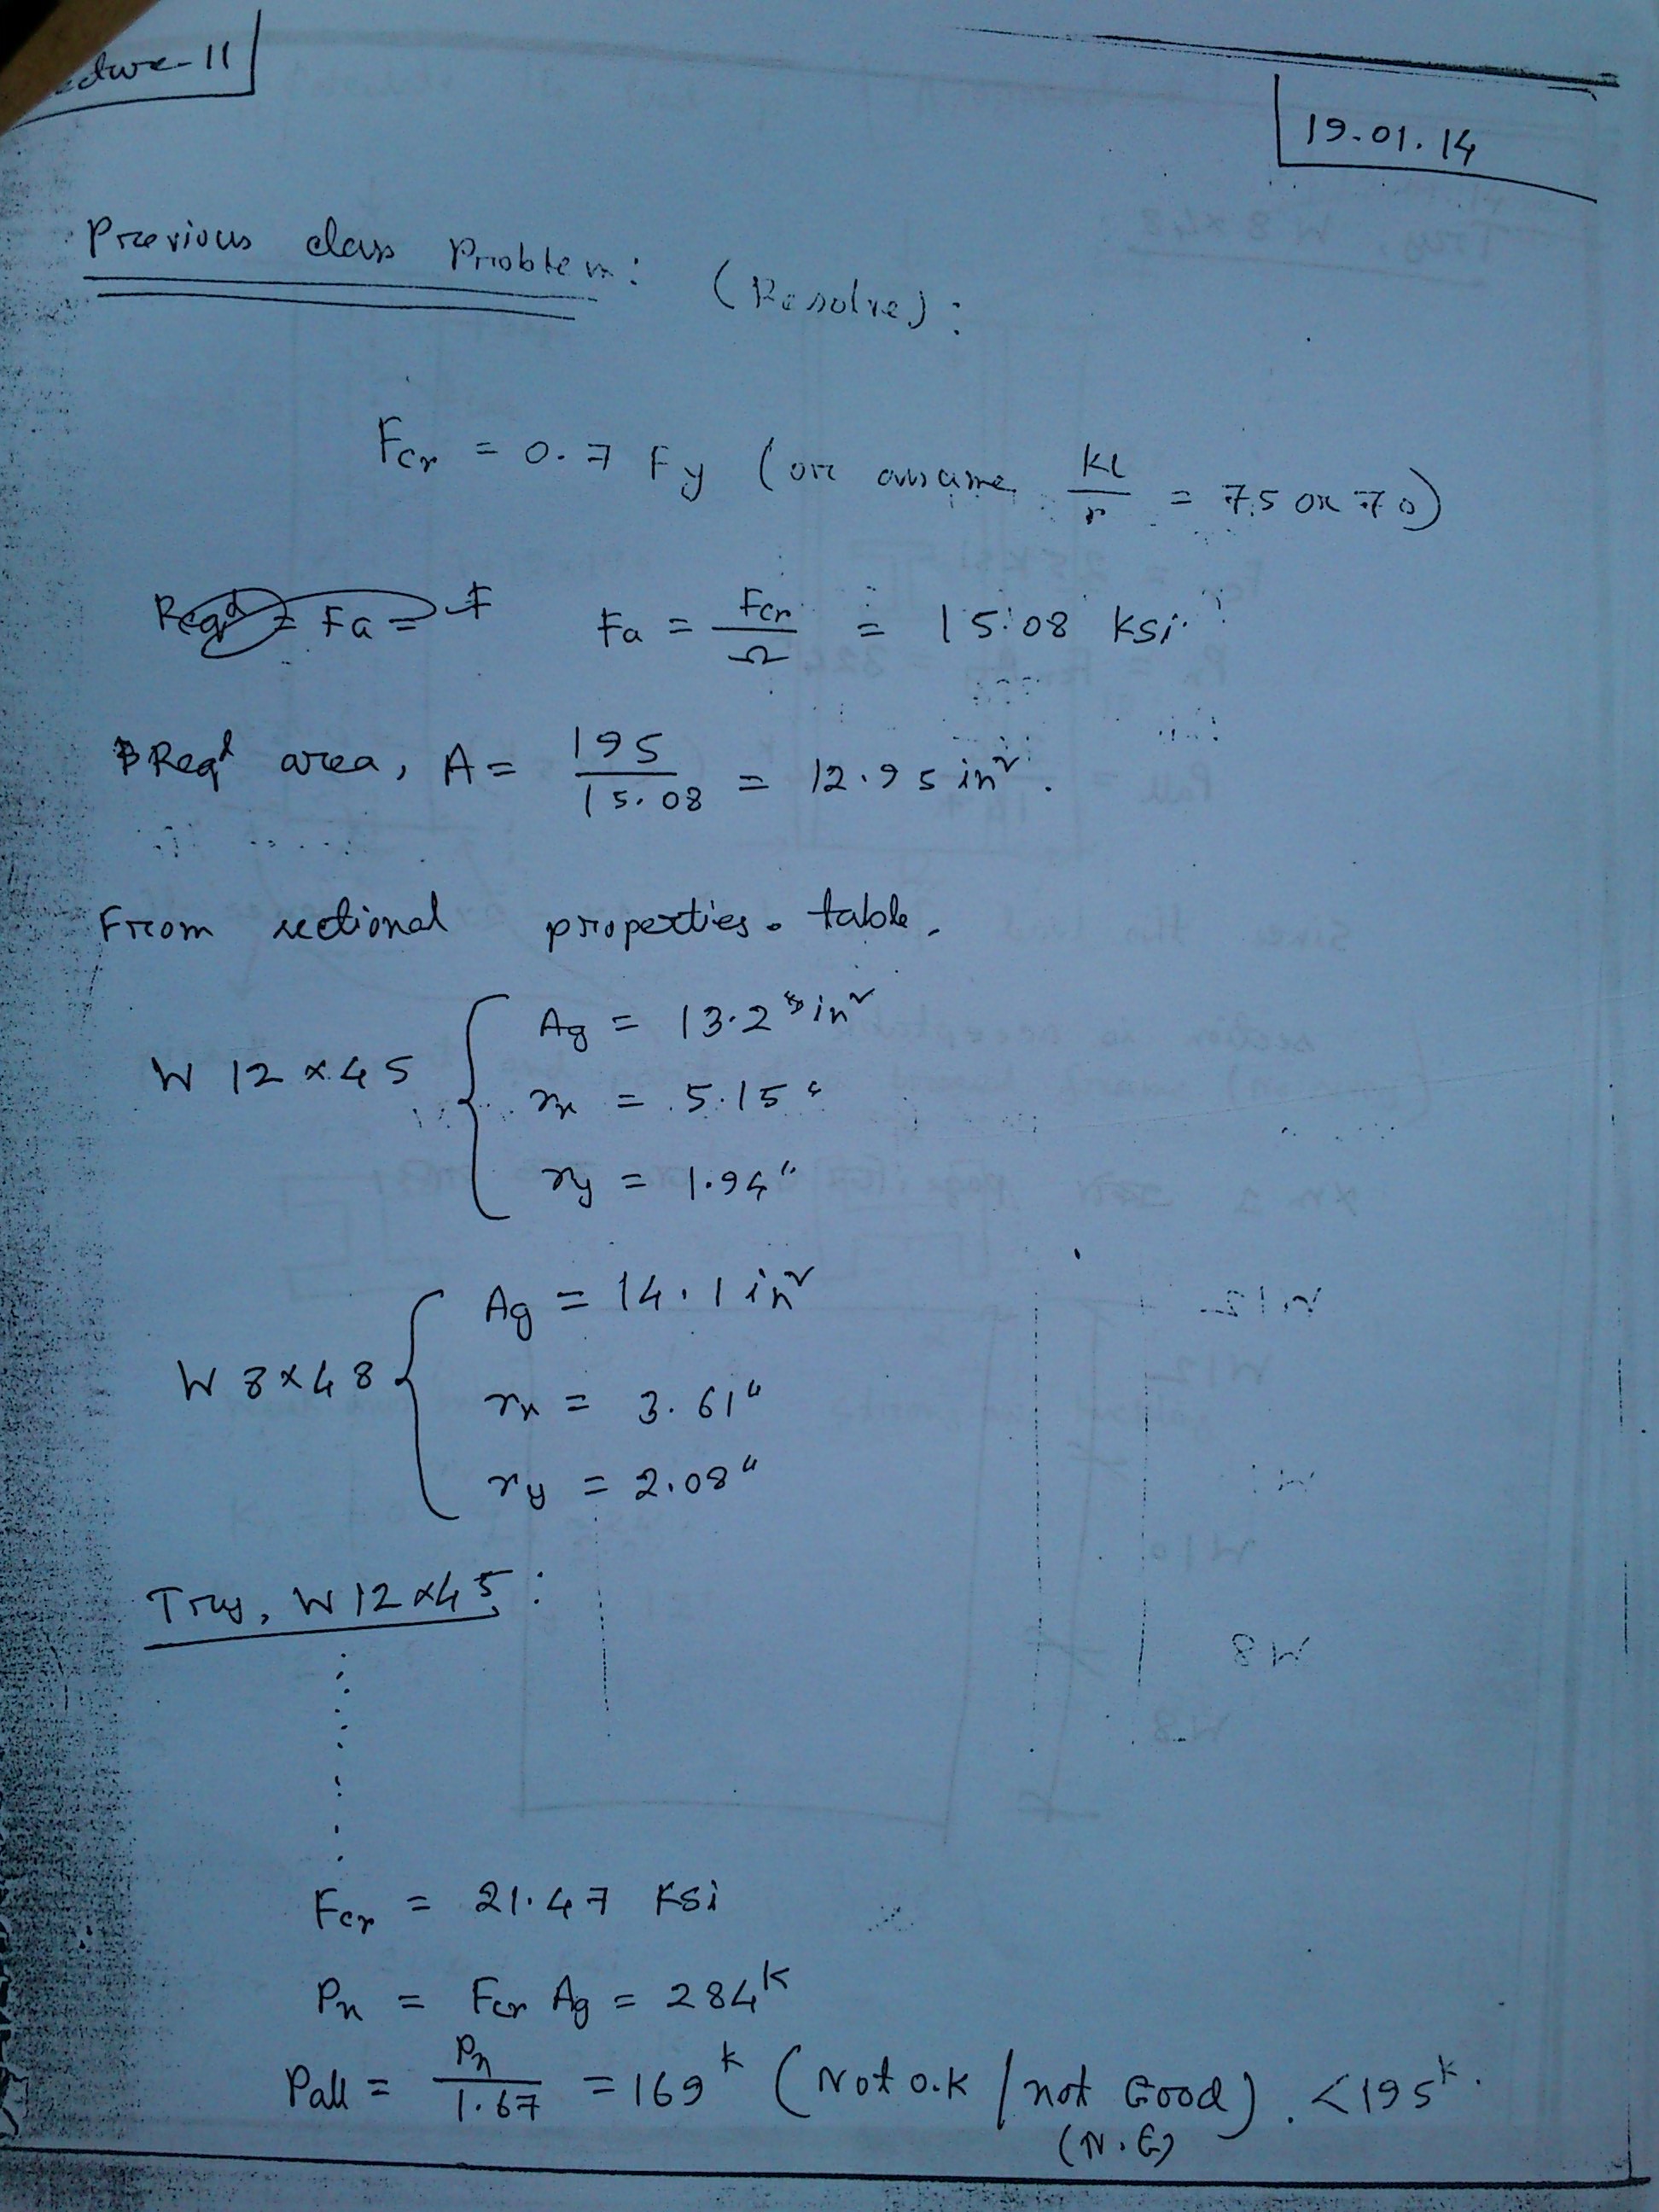 ecture-11
19.01.14
Previous class Problem: (Resolve):
Fcr = 0.7 Fy (or assume KL/r = 75 or 70)
Reqd = Fa = F Fa = Fcr/Ω = 15.08 ksi
Reqd area, A = 195/15.08 = 12.95 in².
From sectional properties table,
W 12 x 45 { Ag = 13.2 in²
rx = 5.15"
ry = 1.94"
W 8 x 48 { Ag = 14.1 in²
rx = 3.61"
ry = 2.08"
Try, W 12 x 45 :
Fcr = 21.47 Ksi
Pn = Fcr Ag = 284 k
Pall = Pn/1.67 = 169 k (Not O.K / not Good). < 195 k.
(N.G)